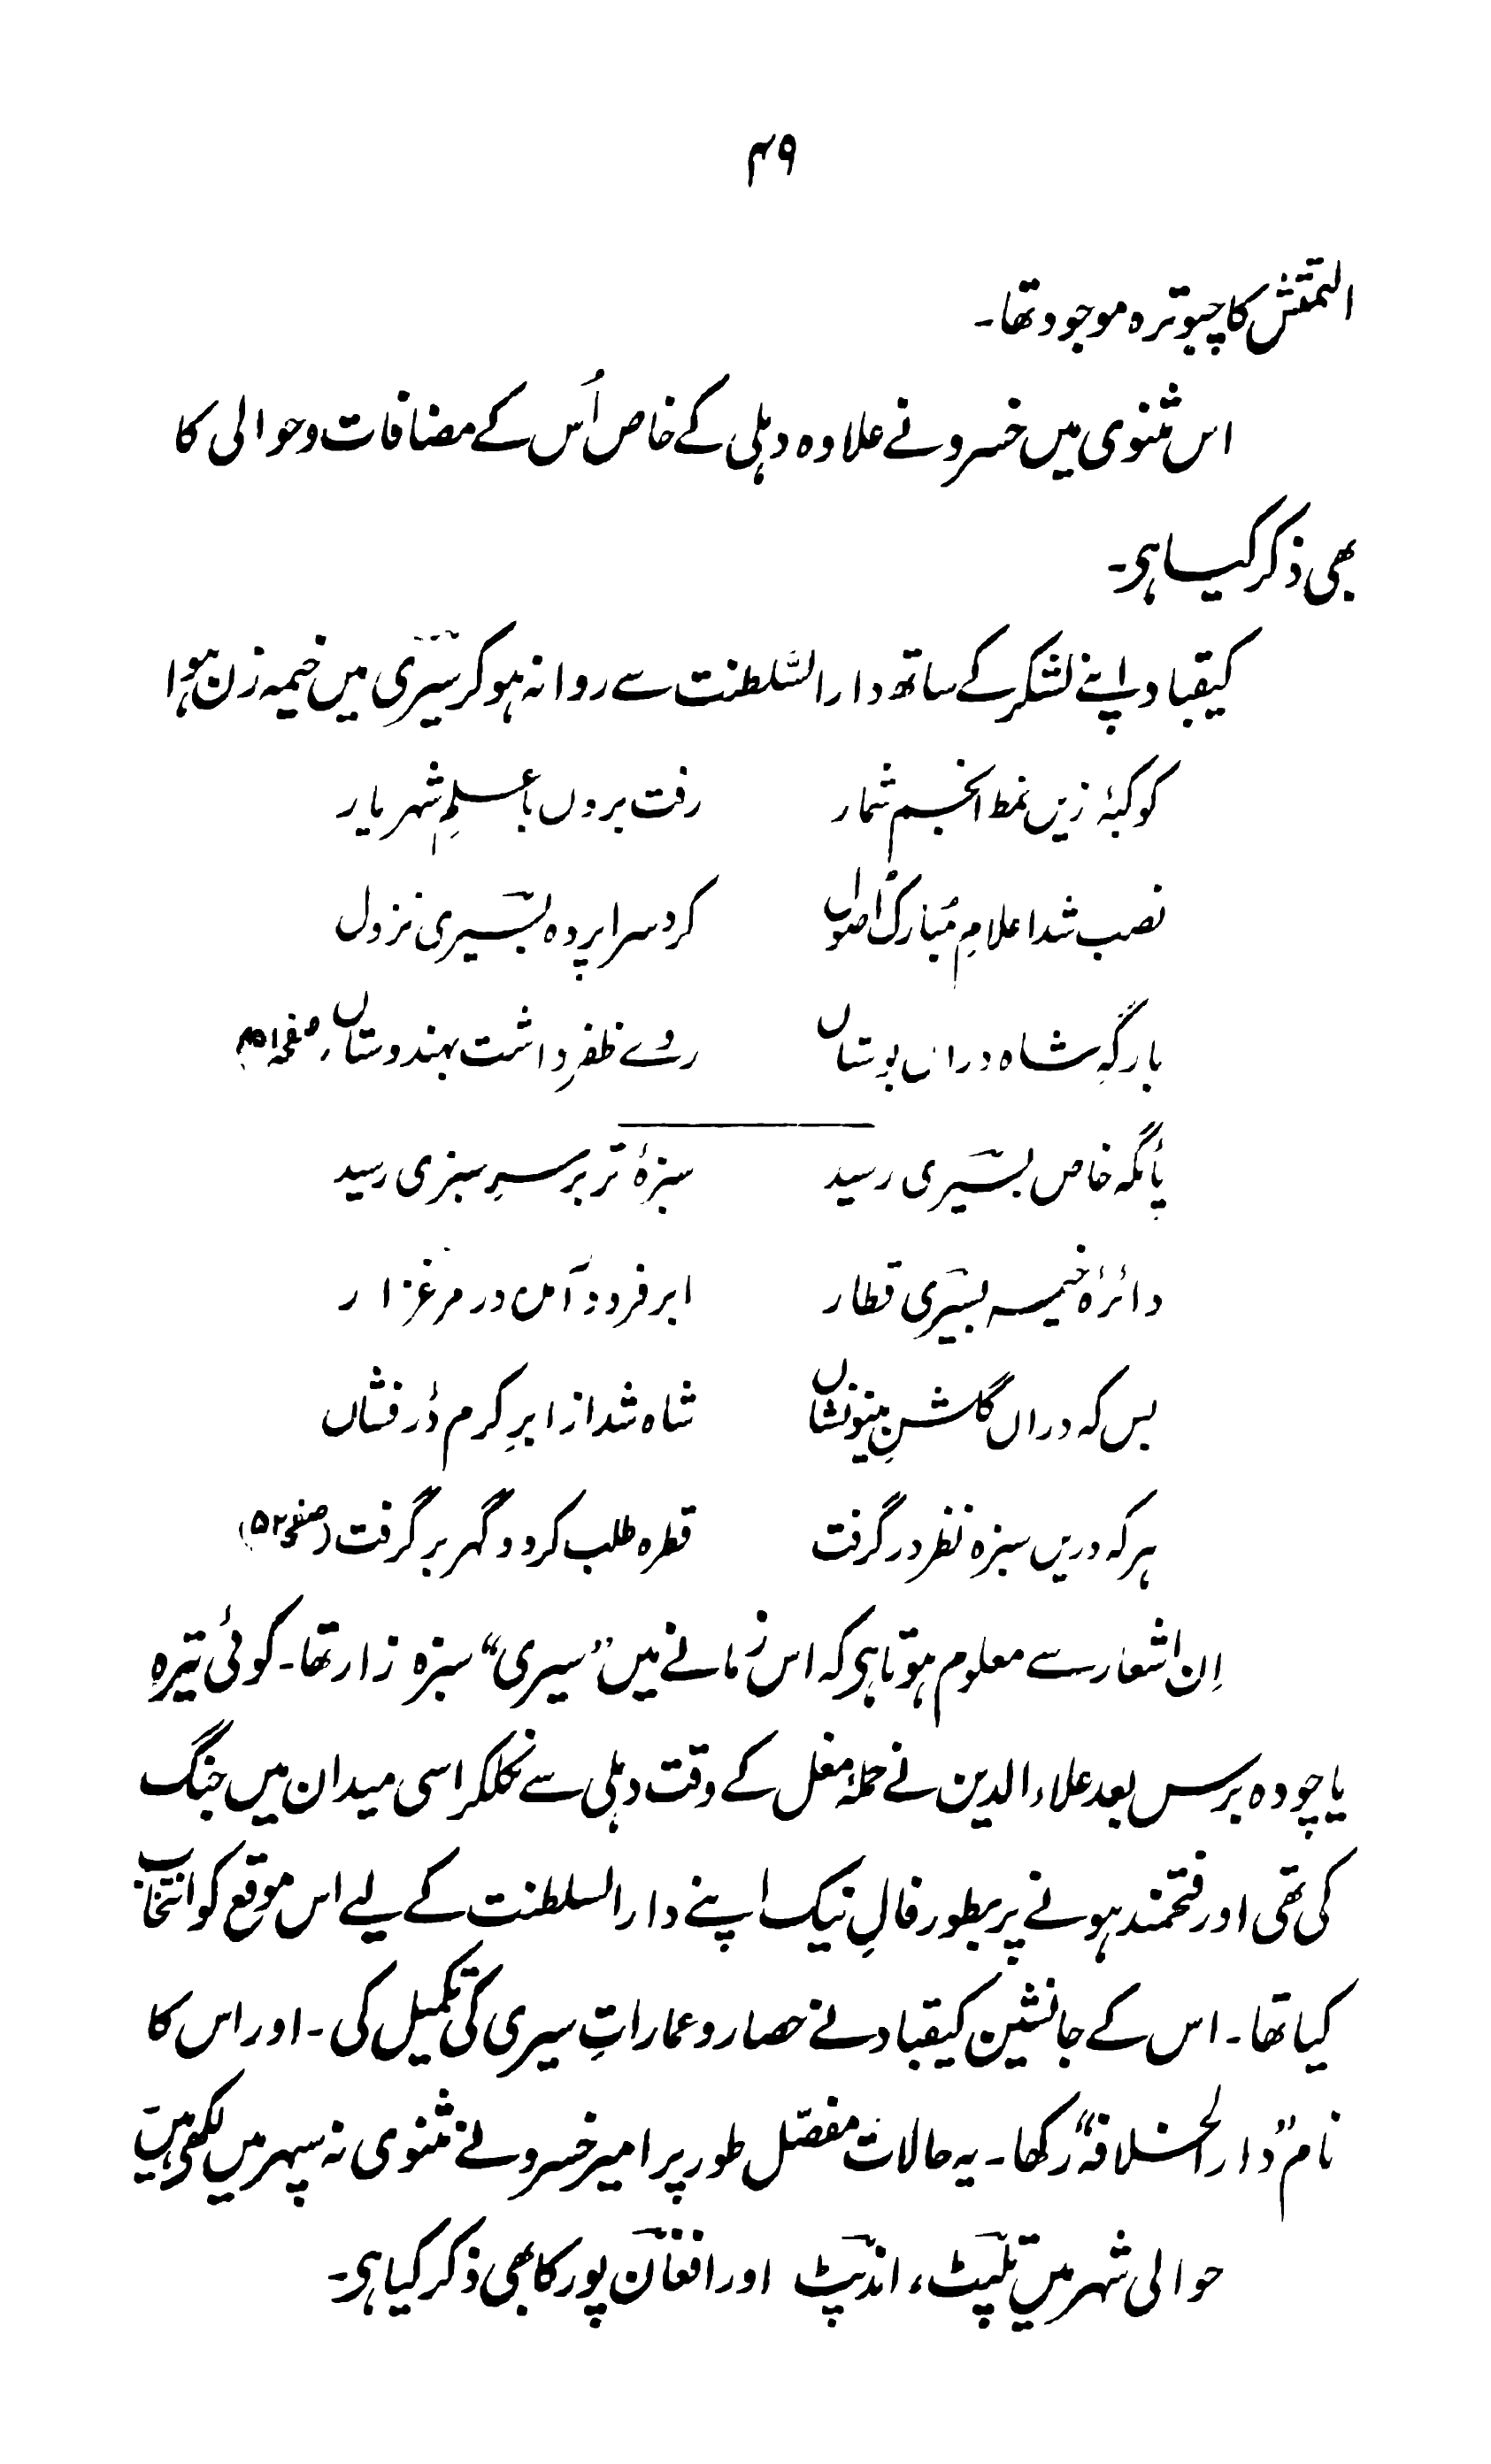 ۴۹
التمتش کا چبوترہ موجود تھا۔
اس مثنوی میں خسرو نے علاوہ دہلی کے خاص اُس کے مضافات و حوالی کا
بھی ذکر کیا ہی۔
کیقباد اپنے لشکر کے ساتھ دار السّلطنت سے روانہ ہو کر سیری میں خیمہ زن ہوا
کوکبۂ زیں نمط انجم شمار رفت بروں با علمِ شہریار
نصب شد اعلامِ مُبارک اصول کرد سرا پردہ بسیری نزول
بارگہِ شاہ دراں بوستاں روے ظفر داشت بہندوستاں (صفحہ ۵۱)
پائگہ خاص بسیری رسید سبزۂ تر بر سرِ سبزی رسید
دائرۂ خیمہ بسیری قطار ابر فرود آمد در مرغزار
بس کہ دراں گلشنِ مینو نشاں شاہ شد از ابرِ کرم دُر فشاں
ہر کہ دریں سبزہ نظر در گرفت قطرہ طلب کرد و گہر بر گرفت (صفحہ ۵۲)
اِن اشعار سے معلوم ہوتا ہی کہ اس زمانے میں "سیری" سبزہ زار تھا۔ کوئی تیرہ
یا چودہ برس بعد علاء الدین نے حملۂ مغل کے وقت دہلی سے نکلکر اسی میدان میں جنگ
کی تھی اور فتحمند ہونے پر بطور فالِ نیک اپنے دار السلطنت کے لیے اس موقع کو انتخاب
کیا تھا۔ اس کے جانشین کیقباد نے حصار و عماراتِ سیری کی تکمیل کی۔ اور اس کا
نام "دار الخلافہ" رکھا۔ یہ حالات مفصّل طور پر امیر خسرو نے مثنوی نہ سپہر میں لکھی ہیں
حوالی شہر میں تلپٹ، اندپٹ اور افغان پور کا بھی ذکر کیا ہی۔